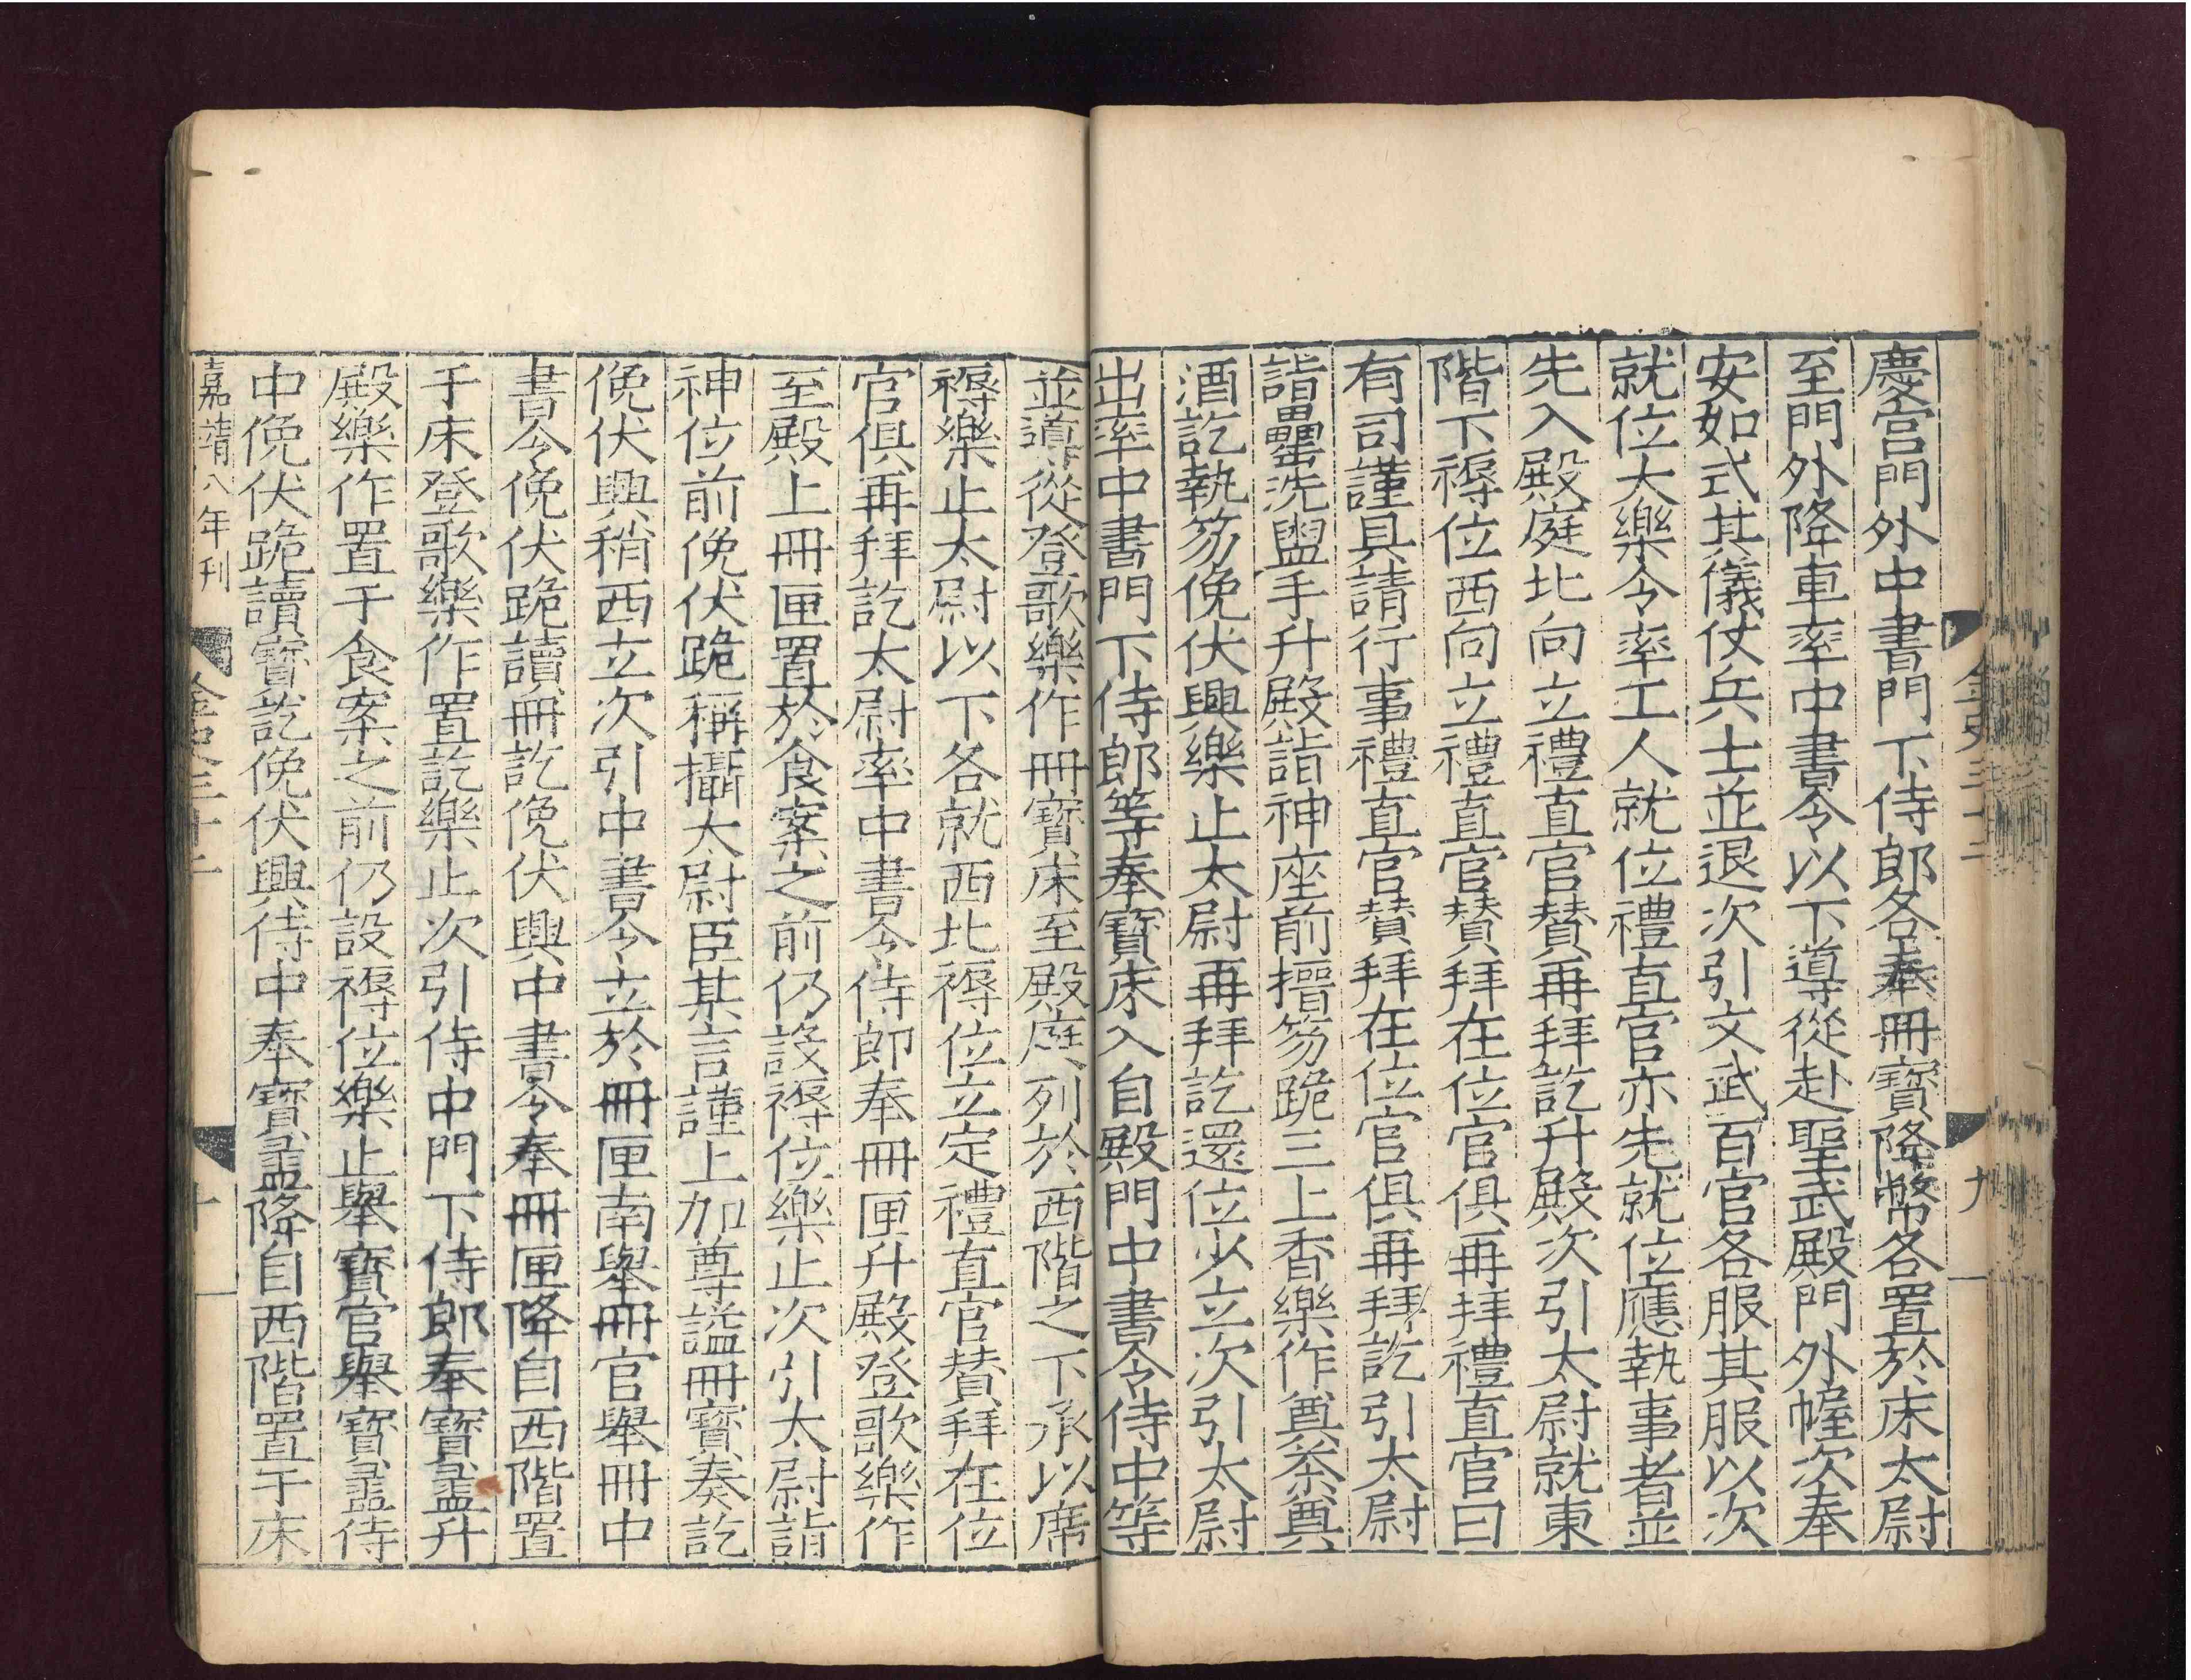 慶宮門外中書門下侍郎各奉冊寶降幣各置於床太尉
至門外降車率中書令以下導從赴聖武殿門外幄次奉
安如式其儀仗兵士並退次引文武百官各服其服以次
就位大樂令率工人就位禮直官亦先就位應執事者並
先入殿庭北向立禮直官賛再拜訖升殿次引太尉就東
階下褥位西向立禮直官賛拜在位官俱再拜禮直官曰
有司謹具請行事禮直官賛拜在位官俱再拜訖引太尉
詣罍洗盥手升殿詣神座前搢笏跪三上香樂作奠茶奠
酒訖執笏俛伏興樂止太尉再拜訖還位少立次引太尉
出率中書門下侍郎等奉寶床入自殿門中書令侍中等
並導從登歌樂作冊寶床至殿庭列於西階之下承以席
褥樂止太尉以下各就西北褥位立定禮直官賛拜在位
官俱再拜訖太尉率中書令侍郎奉冊匣升殿登歌樂作
至殿上冊匣置於食案之前仍設褥位樂止次引太尉詣
神位前俛伏跪稱攝太尉臣某言謹上加尊謚冊寶奏訖
俛伏興稍西立次引中書令立於冊匣南舉冊官舉冊中
書令俛伏跪讀冊訖俛伏興中書令奉冊匣降自西階置
于床登歌樂作置訖樂止次引侍中門下侍郎奉寶盝升
殿樂作置于食案之前仍設褥位樂止舉寶官舉寶盝侍
中俛伏跪讀寶訖俛伏興侍中奉寶盝降自西階置于床
嘉靖八年刊
金史三十二
九
十